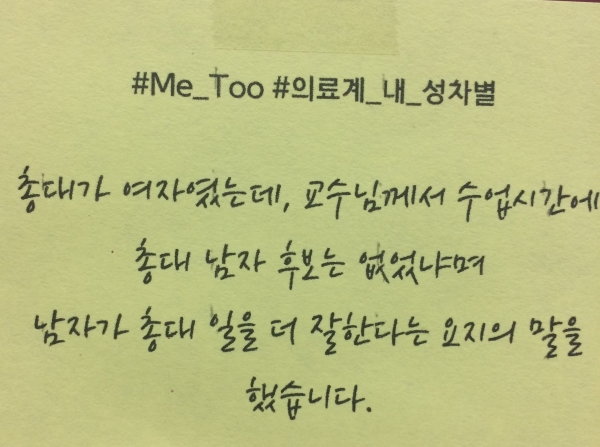 #Me_Too #의료계_내_성차별
총대가 여자였는데, 교수님께서 수업시간에
총대 남자 후보는 없었냐며
남자가 총대 일을 더 잘한다는 요지의 말을
했습니다.